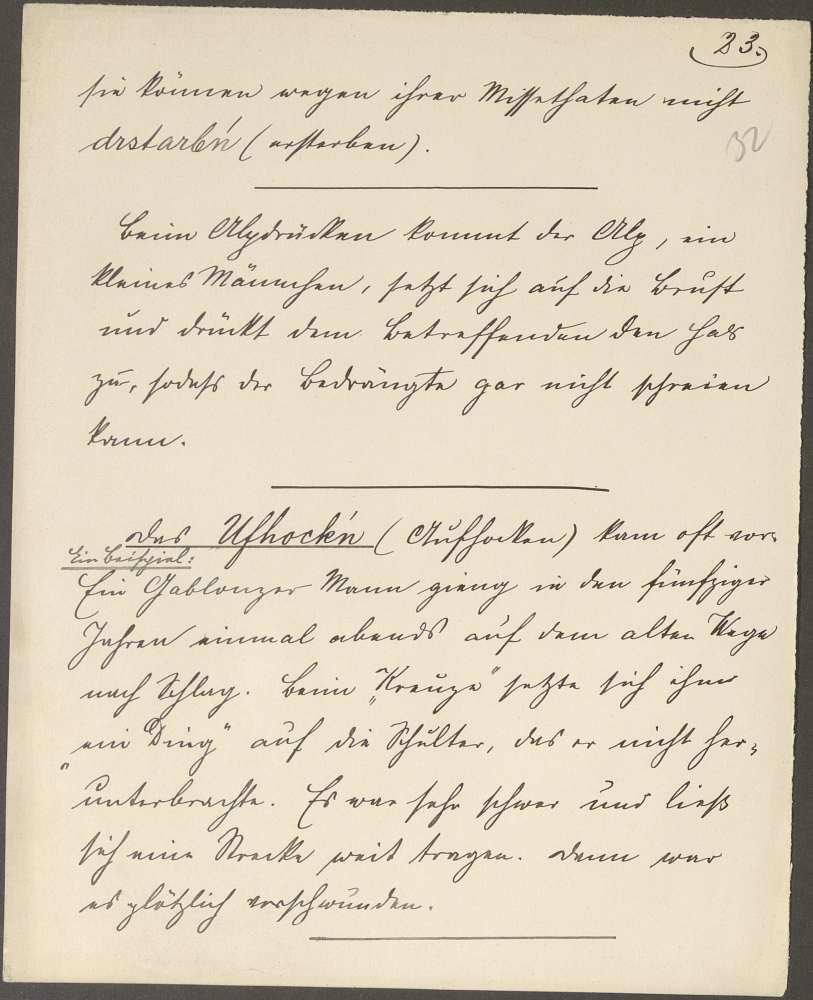 23.
32
sie können wegen ihrer Missethaten nicht
drstarbń (ersterben).
Beim Alpdrücken kommt der Alp, ein
kleines Männchen, setzt sich auf die Brust
und drückt dem Betreffenden den Hals
zu, sodaß der Bedrängte gar nicht schreien
kann.
Das Ufhockń (Aufhocken) kam oft vor.
Ein Beispiel:
Ein Gablonzer Mann gieng in den fünfziger
Jahren einmal abends auf dem alten Wege
nach Schlag. Beim „Kreuze" setzte sich ihm
„ein Ding" auf die Schulter, das er nicht her-
unterbrachte. Es war sehr schwer und ließ
sich eine Strecke weit tragen. Dann war
es plötzlich verschwunden.